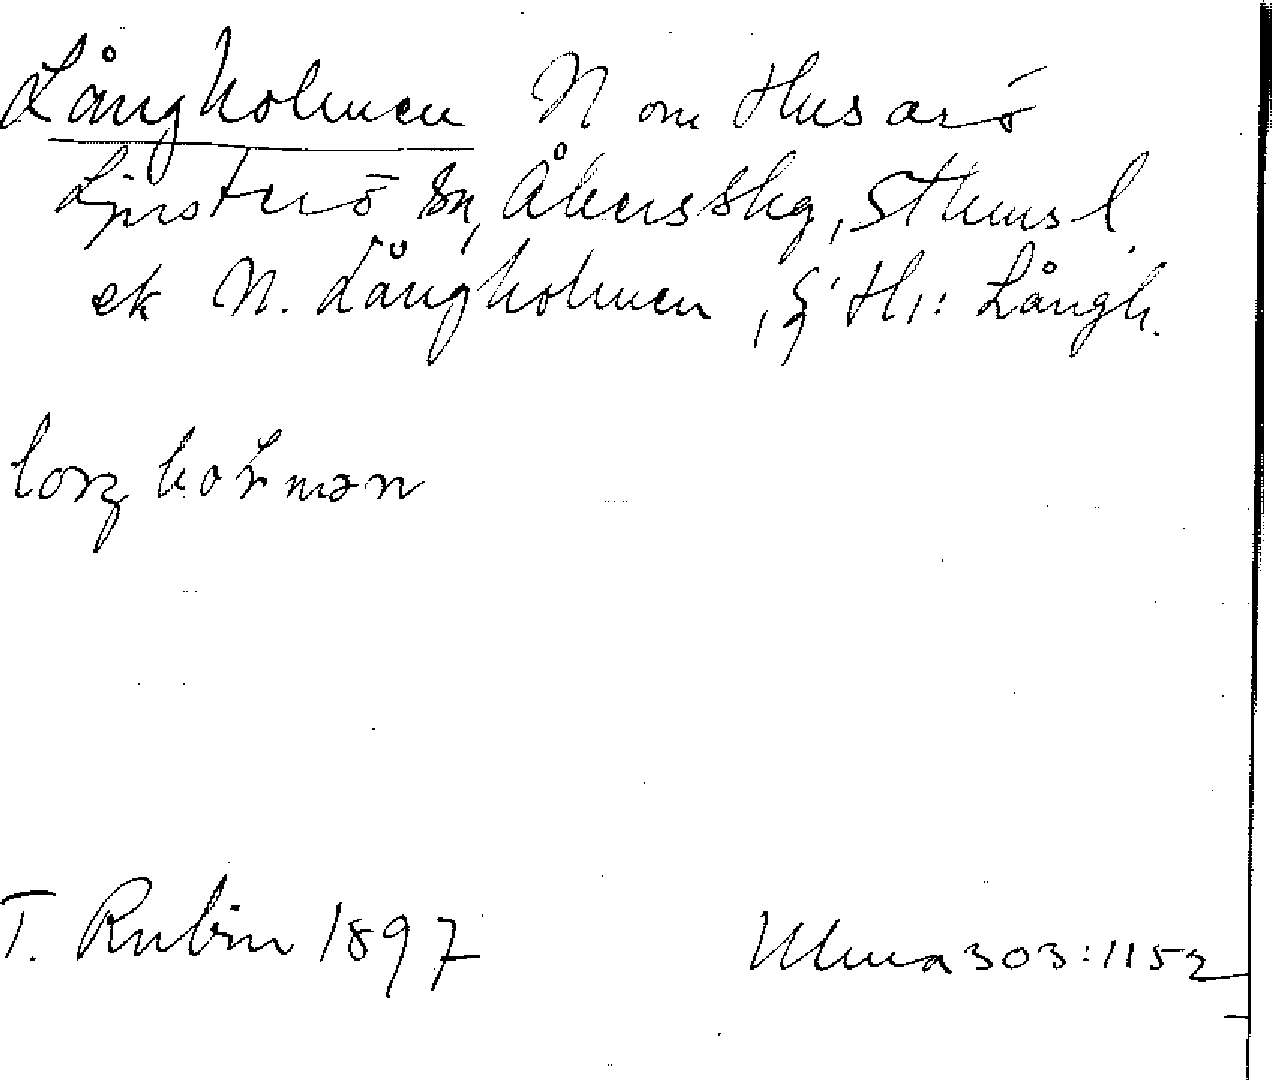 Långholmen N om Husarö
Ljusterö sn, Åkers skg, Sthms l.
ek N. Långholmen, g' Hs: Långh.
T. Rubin 1897 Ulma 303:1152